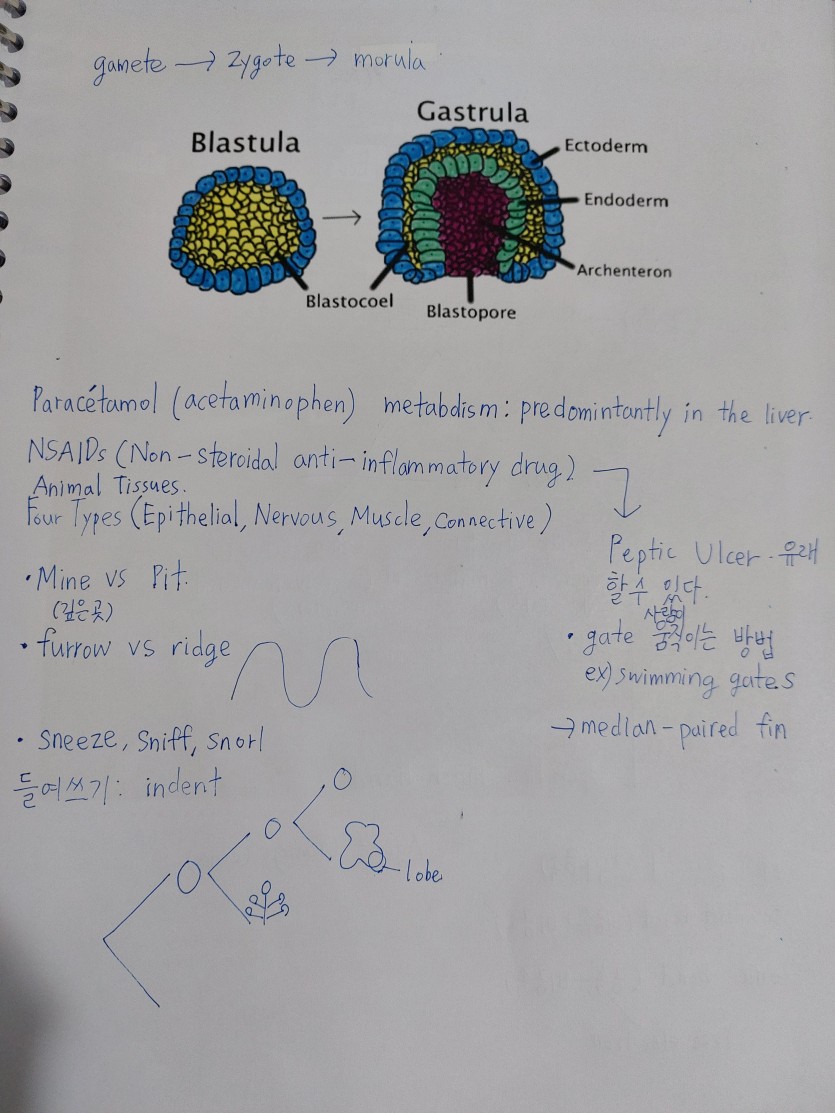 gamete → zygote → morula
Gastrula
Blastula
Ectoderm
Endoderm
Archenteron
Blastocoel
Blastopore
Paracétamol (acetaminophen) metabolism: predomintantly in the liver.
NSAIDs (Non-steroidal anti-inflammatory drug)
Animal Tissues.
Four Types (Epithelial, Nervous, Muscle, Connective)
Peptic Ulcer. 유래
할수 있다.
• Mine vs Pit.
(깊은곳)
• furrow vs ridge
사람이
• gate 움직이는 방법
ex) swimming gates
→ median-paired fin
• Sneeze, Sniff, snorl
들여쓰기: indent
lobe